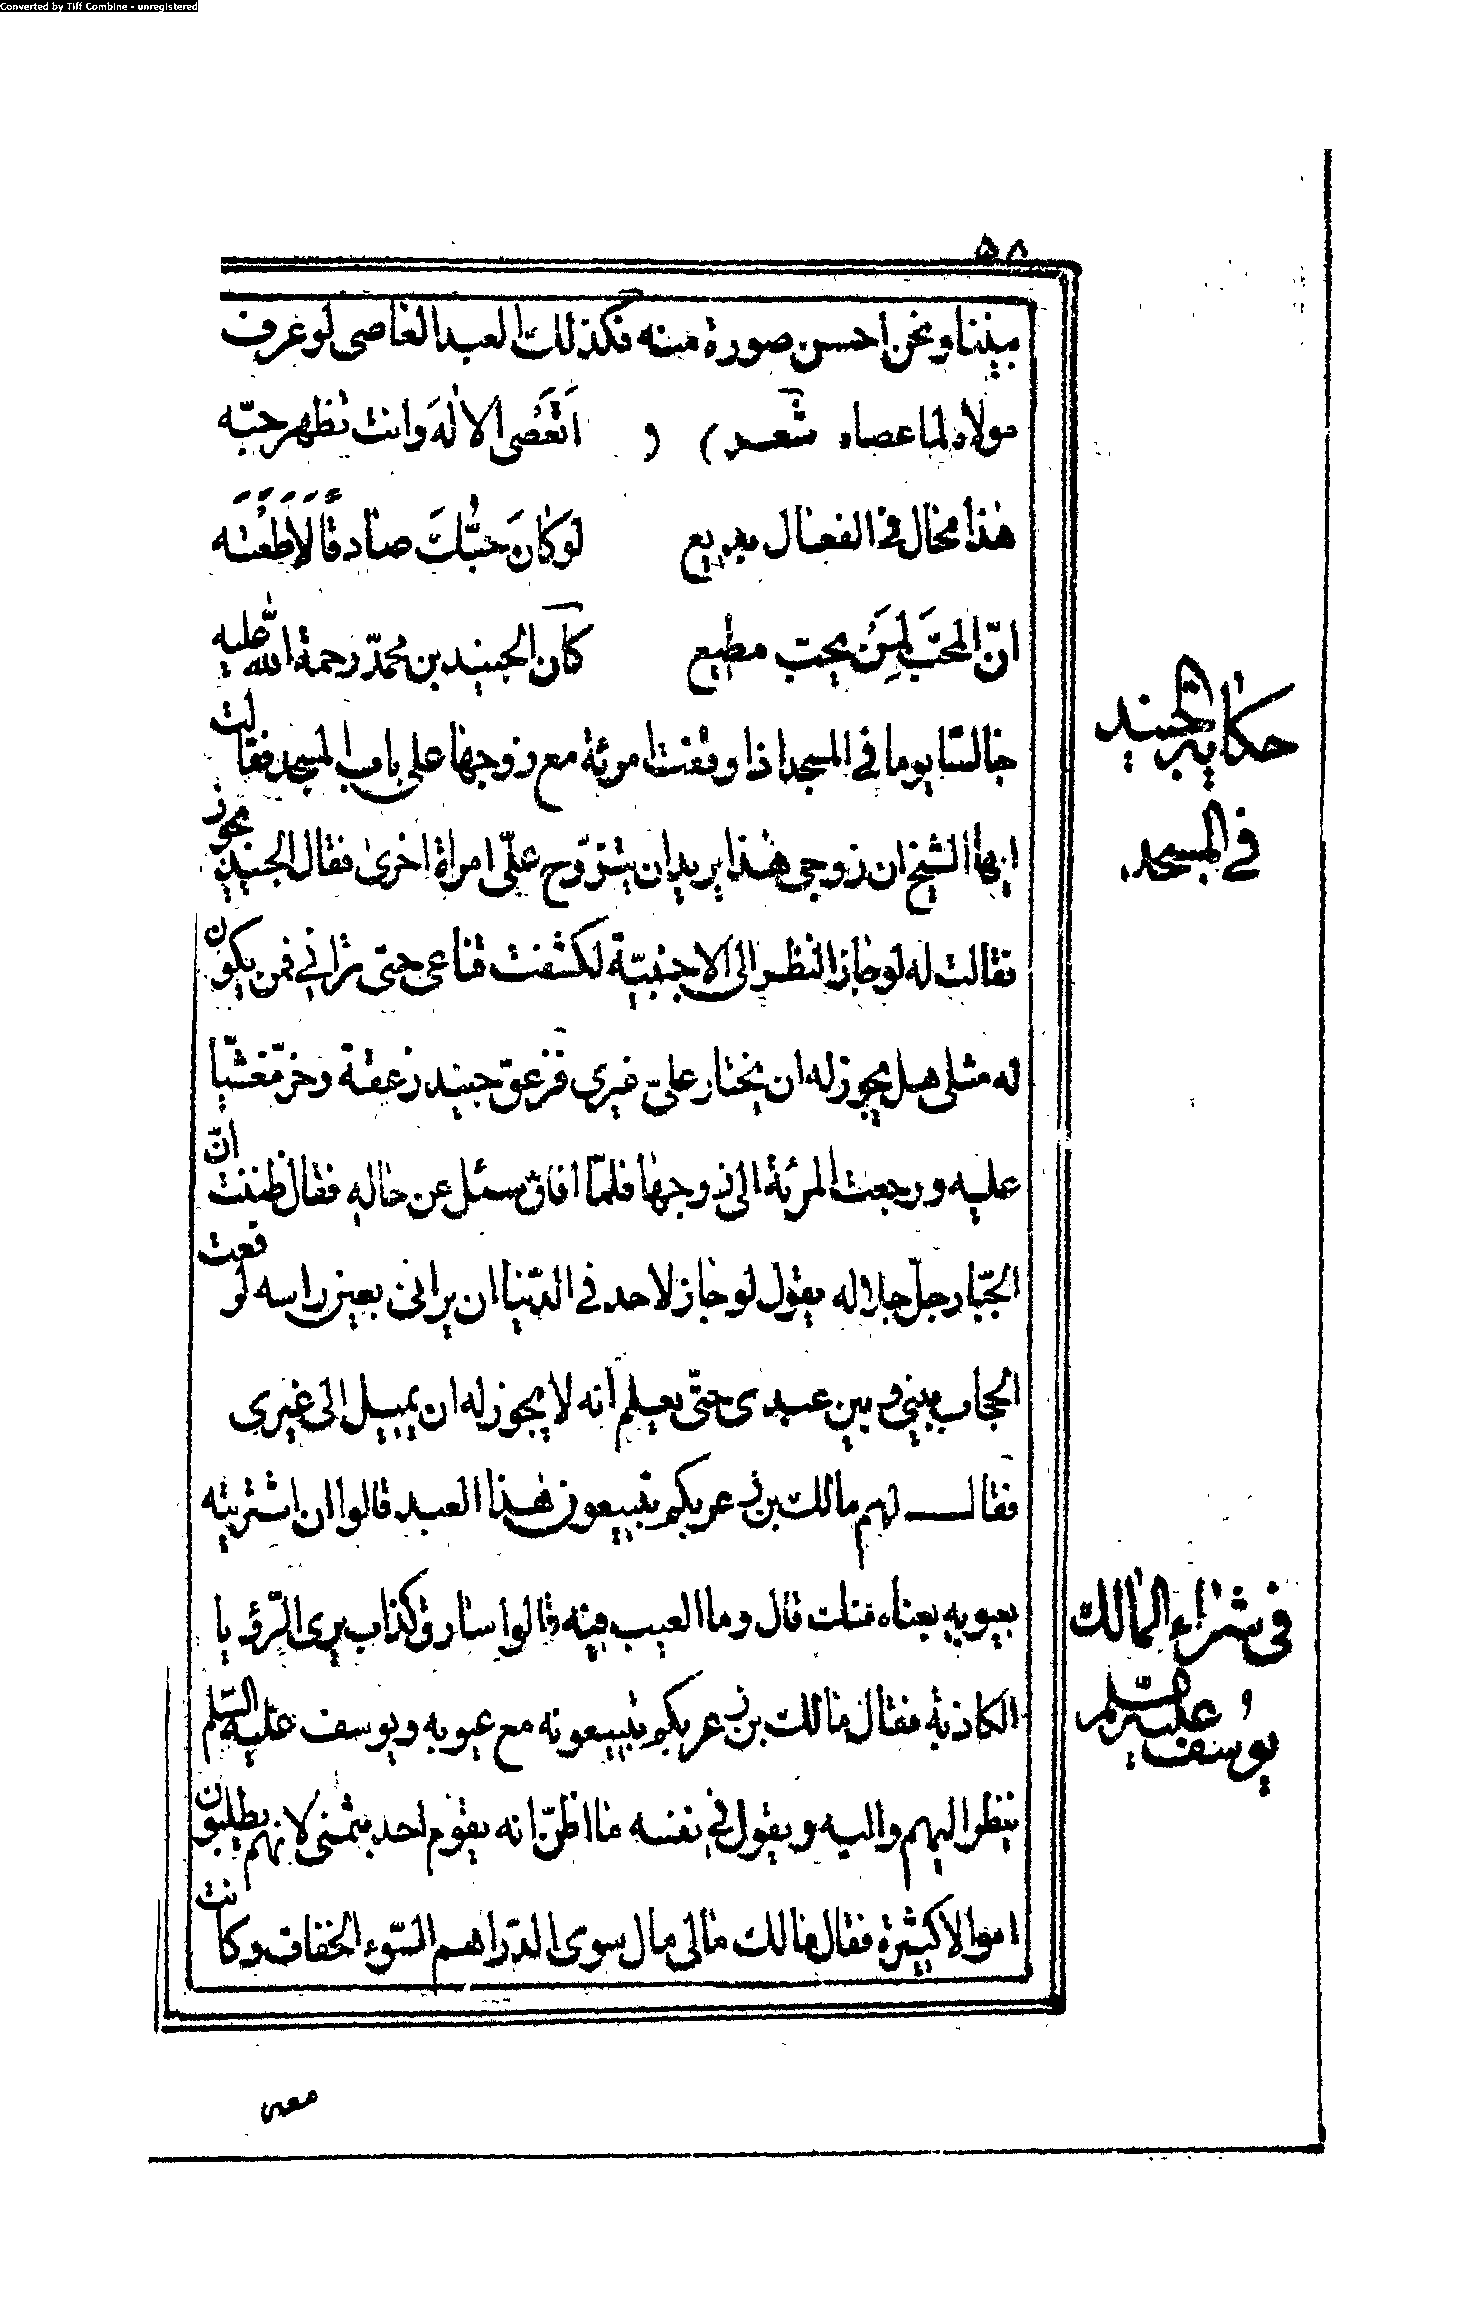 Converted by Tiff Combine - unregistered
٥٨
بيننا ونحن احسن صورة منه فكذلك العبد العاصى لو عرف
مولاه لما عصاه شعر اَتَعْصَى الالٰهَ وانت تظهر حبّه
هذا محال فى الفعال بديع لَو كَانَ حُبُّكَ صادقًا لَاَطَعْتَه
انّ المحبّ لِمَنْ يحبّ مطيع كان الجنيد بن محمّد رحمة اللّه عليه
جالسًا يوما فى المسجد اذا وقفت امرئة مع زوجها على باب المسجد فقالت
ايها الشيخ ان زوجى هذا يريد ان يتزوّج علىّ امراة اخرى فقال الجنيد يجوز
فقالت له لو جاز النظر الى الاجنبيّة لكشفت قناعى حتى ترانى فمن يكون
له مثلى هل يجوز له ان يختار علىّ غيرى فزعق جنيد زعقة وخرّ مغشيّا
عليه ورجعت المرئة الى زوجها فلمّا افاق سئل عن حاله فقال ظننت انّ
الجبّار جلّ جلاله يقول لو جاز لاحد فى الدّنيا ان يرانى بعين راسه لرفعت
الحجاب بينى و بين عبدى حتّى يعلم انه لا يجوز له ان يميل الى غيرى
فقال لهم مالك بن زعر بكم تبيعون هذا العبد قالوا ان اشتريته
بعيوبه بعناه منك قال وما العيب فيه قالوا سارق كذاب يرى الرّؤيا
الكاذبة فقال مالك بن زعر بكم تبيعونه مع عيوبه ويوسف عليه السّلم
ينظر اليهم واليه ويقول فى نفسه ما اظنّ انه يقوم احد بثمنى لانهم يطلبون
اموالا كثيرة فقال مالك مالى مال سوى الدّراهم السّوء الخفاف وكانت
معى
حكاية الجنيد
فى المسجد
فى شراء المالك
يوسف عليه السّلم